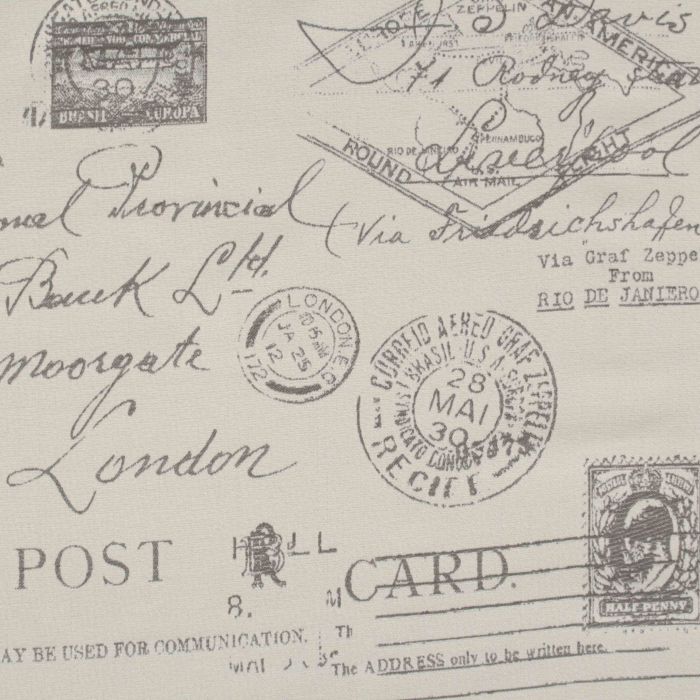 30
BRASIL EUROPA
TO RE
ZEPPELIN
PAN AMERICAN
LAKEHURST
S Davis
71 Rodney Street
RIO DE JANEIRO
PERNAMBUCO
Liverpool
ROUND FLIGHT
U.S.
AIR MAIL
onel Provincial
(Via Friedrichshafen
Bank Ltd.
Via Graf Zeppe
From
RIO DE JANIERO
LONDON E.C
10 15 AM
JA 25
12
172
Moorgate
CORREIO AEREO GRAF ZEPPELIN
BRASIL - U.S.A.
28
MAI
30
RECIFE
London
POST CARD.
H LL
8.
HALF PENNY
AY BE USED FOR COMMUNICATION.
Th
MAI
The ADDRESS only to be written here.